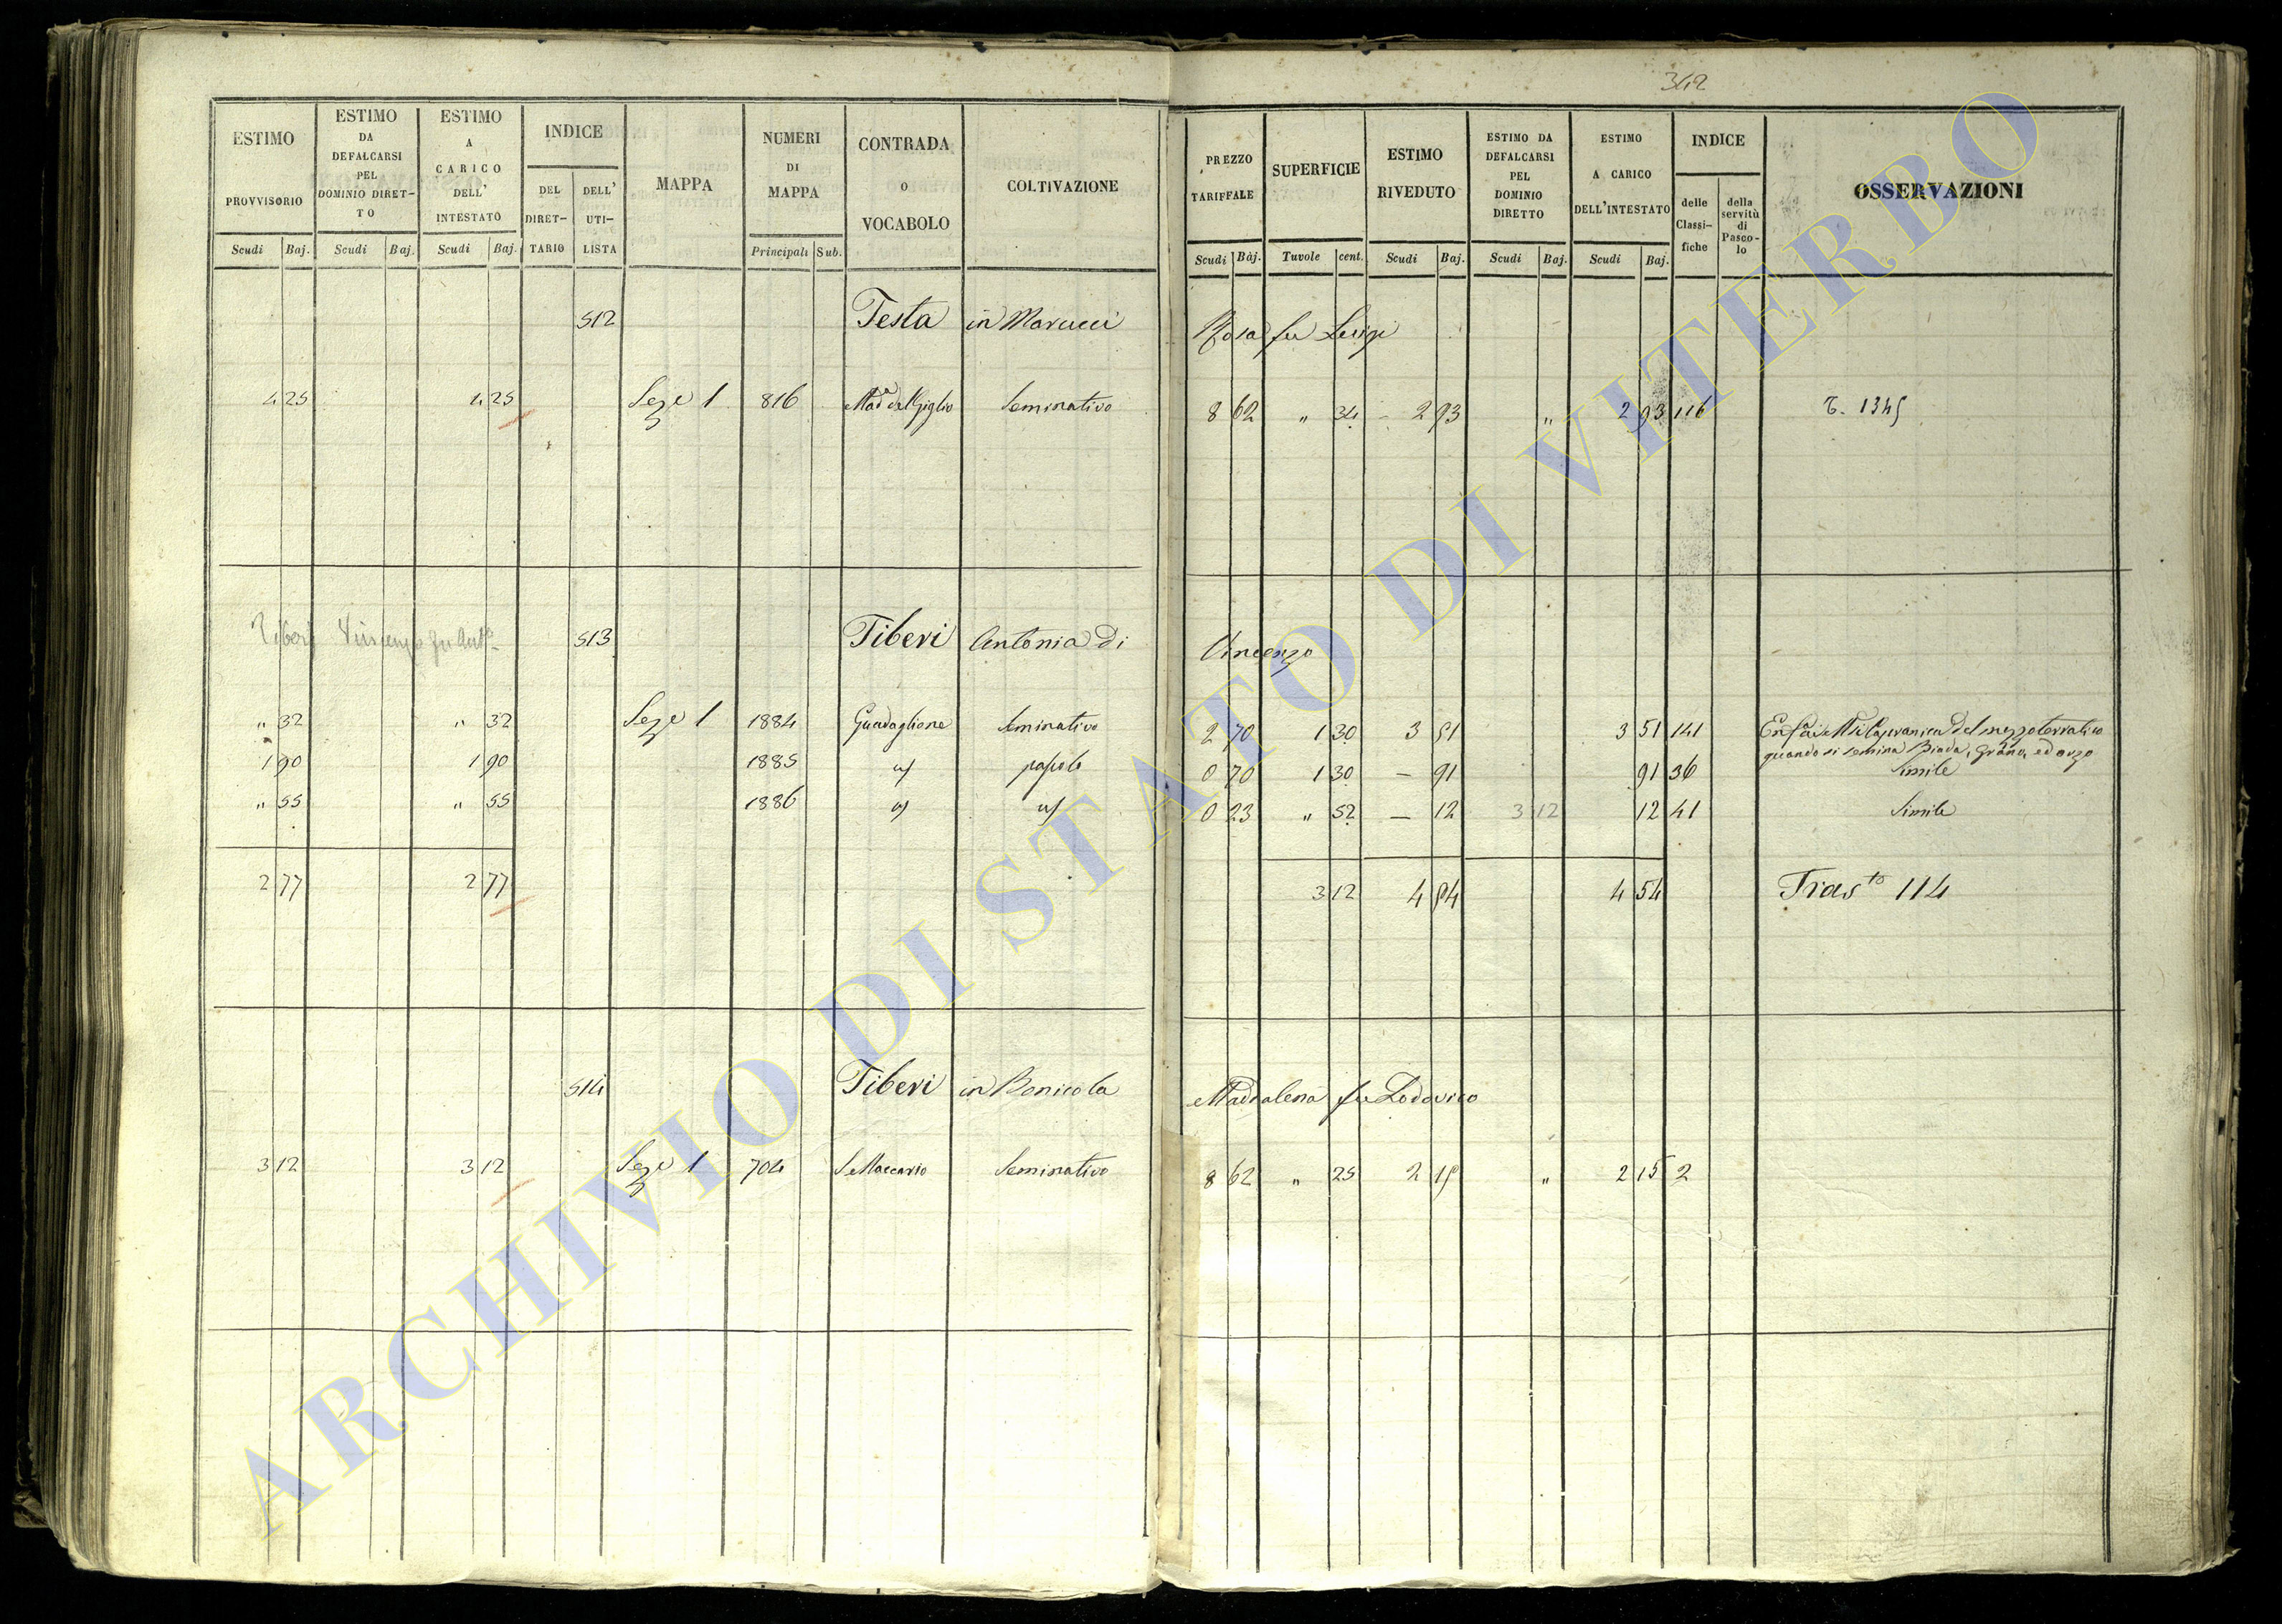 342
ESTIMO PROVVISORIO | ESTIMO DA DEFALCARSI PEL DOMINIO DIRETTO | ESTIMO A CARICO DELL' INTESTATO | INDICE | MAPPA | NUMERI DI MAPPA | CONTRADA O VOCABOLO | COLTIVAZIONE | PREZZO TARIFFALE | SUPERFICIE | ESTIMO RIVEDUTO | ESTIMO DA DEFALCARSI PEL DOMINIO DIRETTO | ESTIMO A CARICO DELL'INTESTATO | INDICE | OSSERVAZIONI
DEL DIRETTARIO | DELL' UTILISTA | delle Classifiche | della servitù di Pascolo
Scudi | Baj. | Scudi | Baj. | Scudi | Baj. | Principali | Sub. | Scudi | Baj. | Tavole | cent. | Scudi | Baj. | Scudi | Baj. | Scudi | Baj.
512 Testa in Marucci Rosa fu Luigi
4 25 | 4 25 | Seze 1 | 816 | Mada del Giglio | Seminativo | 8 62 | " 34 | - 2 93 | " | 2 93 | 116 | T. 1345
Tiberj Vincenzo fu Anto
513 Tiberi Antonia di Vincenzo
" 32 | " 32 | Seze 1 | 1884 | Guadaglione | Seminativo | 2 70 | 1 30 | 3 51 | 3 51 | 141
quando si semina Biada, Grano, ed orzo
1 90 | 1 90 | 1885 | " | pascolo | 0 70 | 1 30 | — 91 | 91 | 36 | Simile
" 55 | " 55 | 1886 | " | " | 0 23 | " 52 | — 12 | 3 12 | 12 | 41 | Simile
2 77 | 2 77 | 3 12 | 4 54 | 4 54 | Trasto 114
514 Tiberi in Bonicola Maddalena fu Lodovico
3 12 | 3 12 | Seze 1 | 704 | S. Maccario | Seminativo | 8 62 | " 25 | 2 15 | " | 2 15 | 2
ARCHIVIO DI STATO DI VITERBO